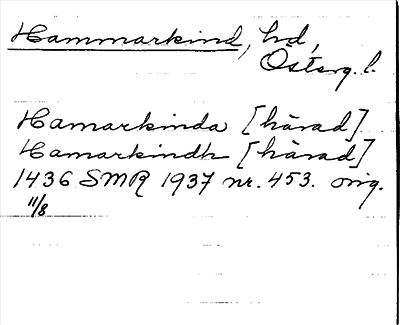 Hammarkind, hd,
Österg. l.
Hamarkinda [härad]
Hamarkindh [härad]
1436 SMR 1937 nr. 453. orig.
11/8